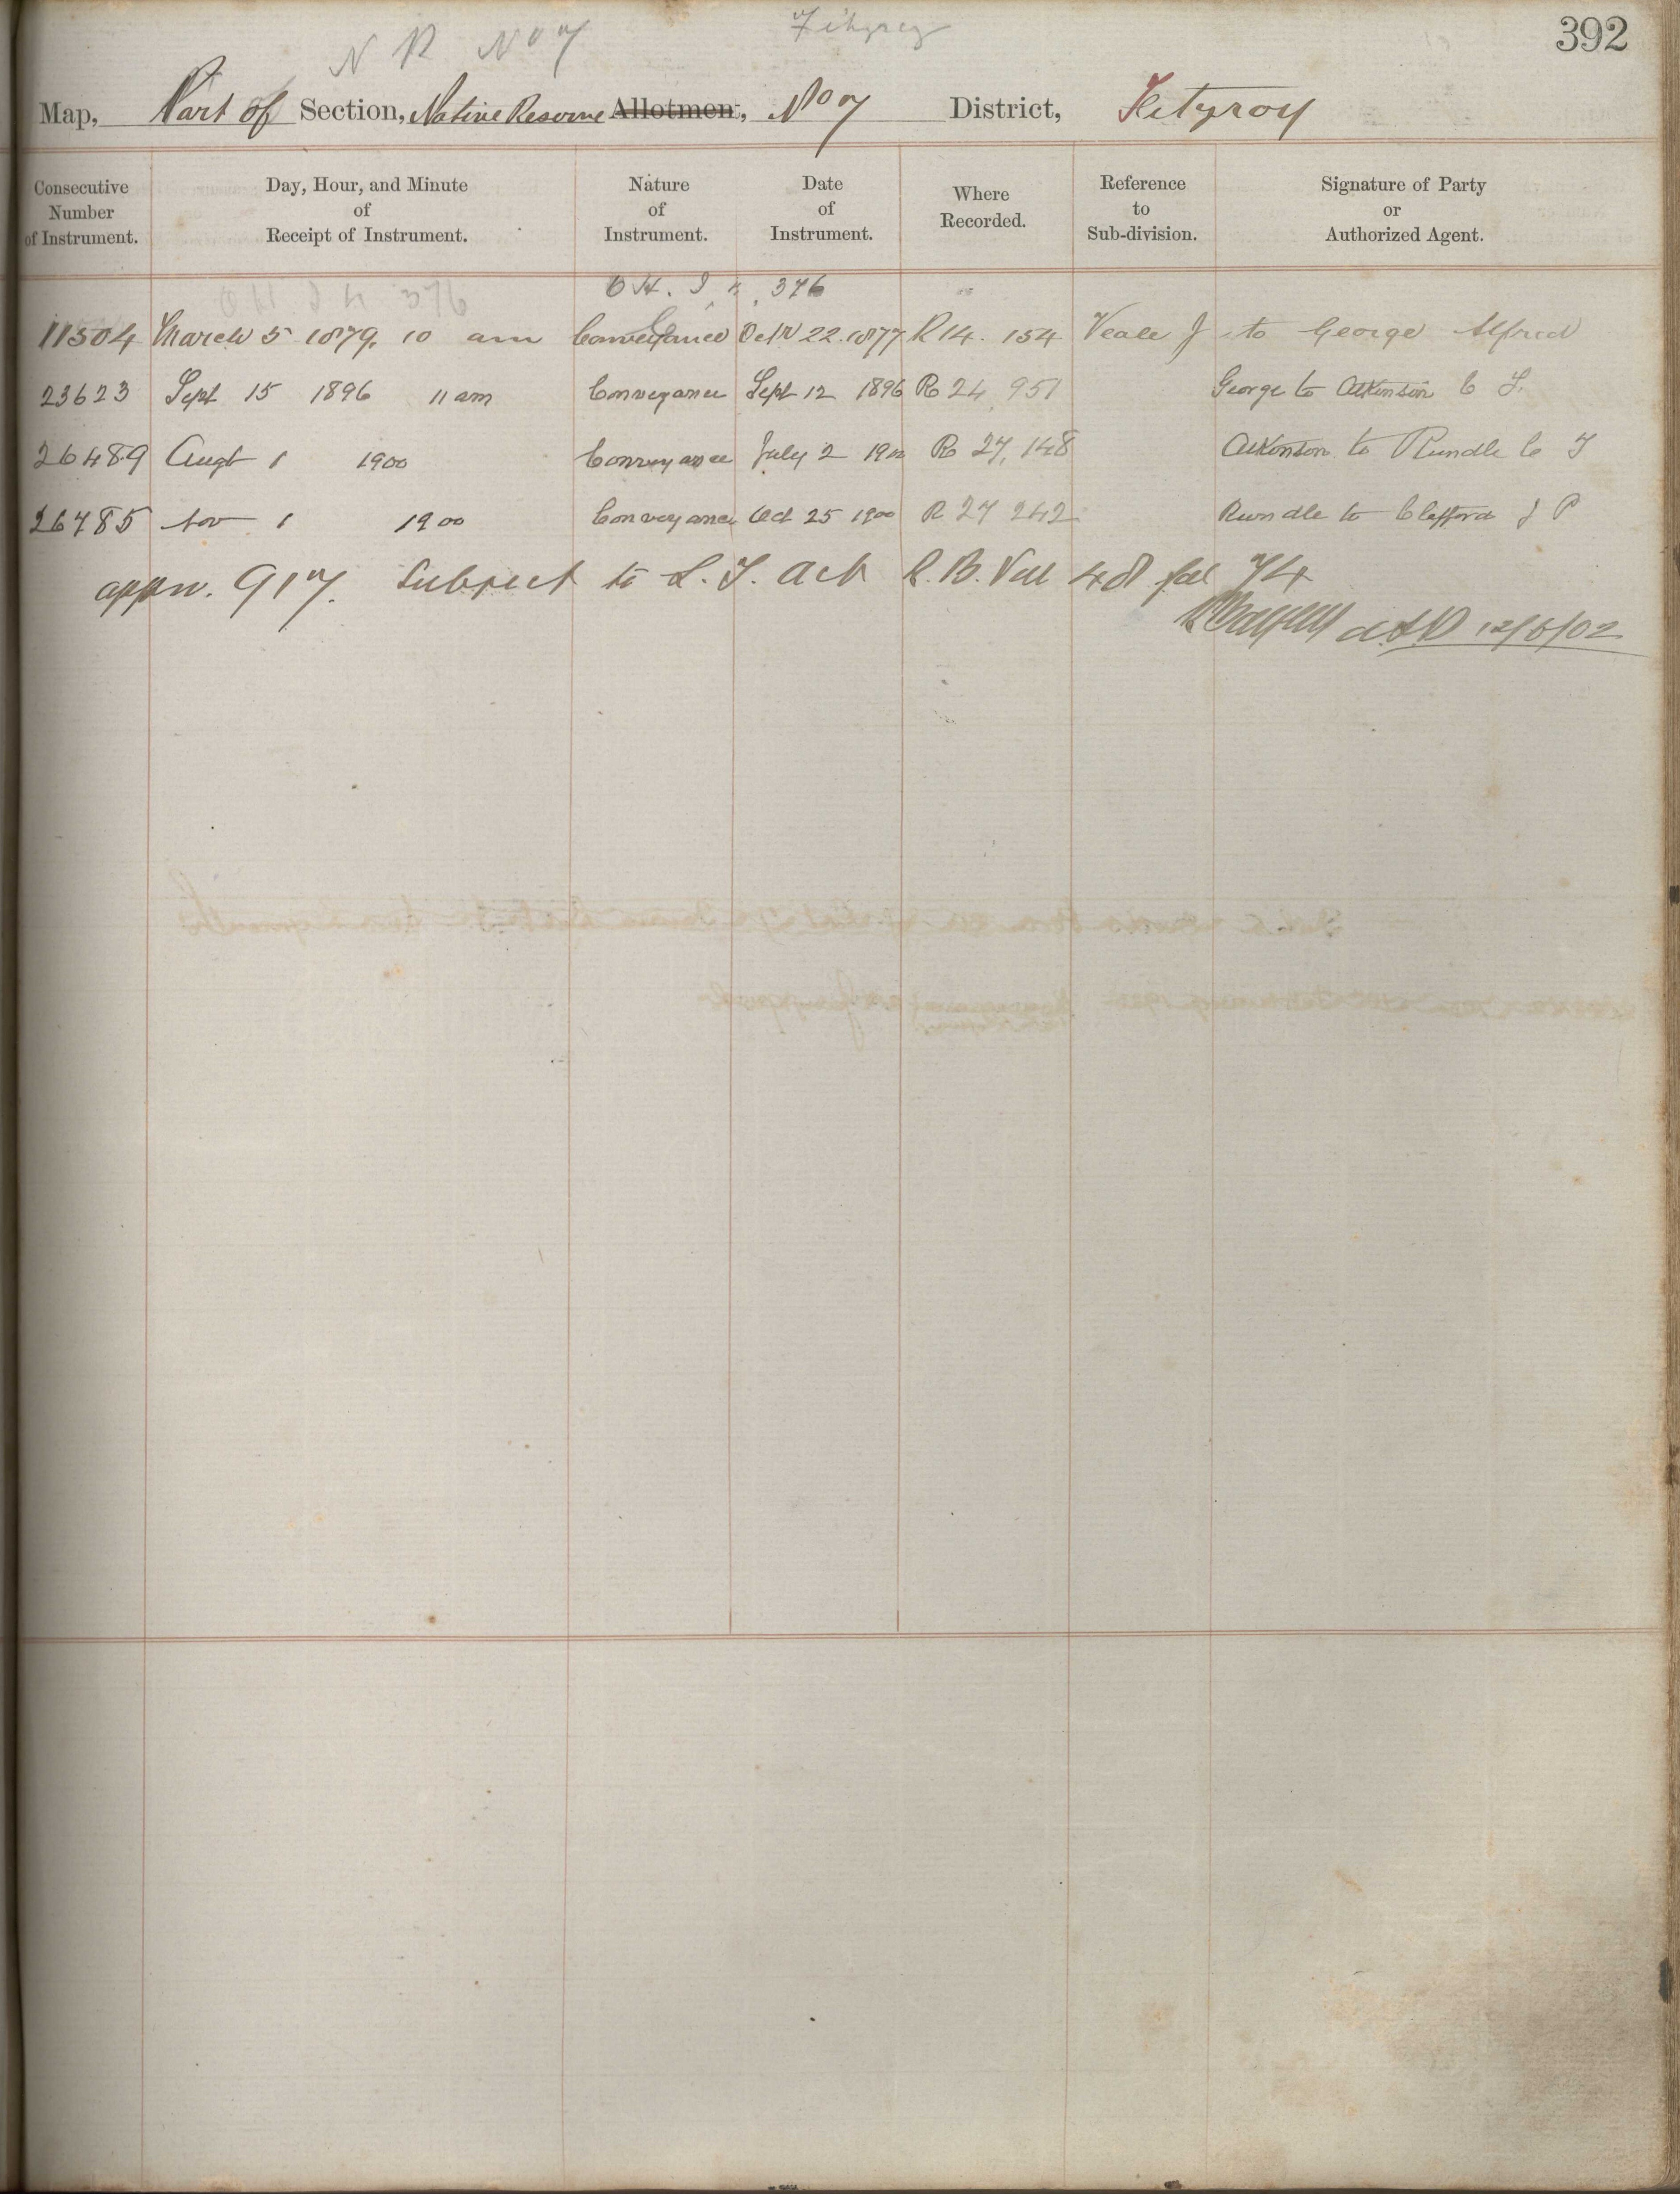 392
N R No 7 Fitzroy
Map, Part of Section, Native Reserve Allotment, No 7 District, Fitzroy
Consecutive Number of Instrument. Day, Hour, and Minute of Receipt of Instrument. Nature of Instrument. Date of Instrument. Where Recorded. Reference to Sub-division. Signature of Party or Authorized Agent.
376
11504 March 5 1879. 10 am Conveyance Octr 22. 1877 R 14. 154 Veale J to George Alfred
23623 Sept 15 1896 11 am Conveyance Sept 12 1896 R 24 951 George to Atkinson C S.
26489 Augt 1 1900 Conveyance July 2 1900 R 27, 148 Atkinson to Rundle C T
26785 Nov 1 1900 Conveyance Oct 25 1900 R 27 242 Rundle to Clifford J P
appn. 917. Subject to L. T. Act R. B. Vol 48 fol 74